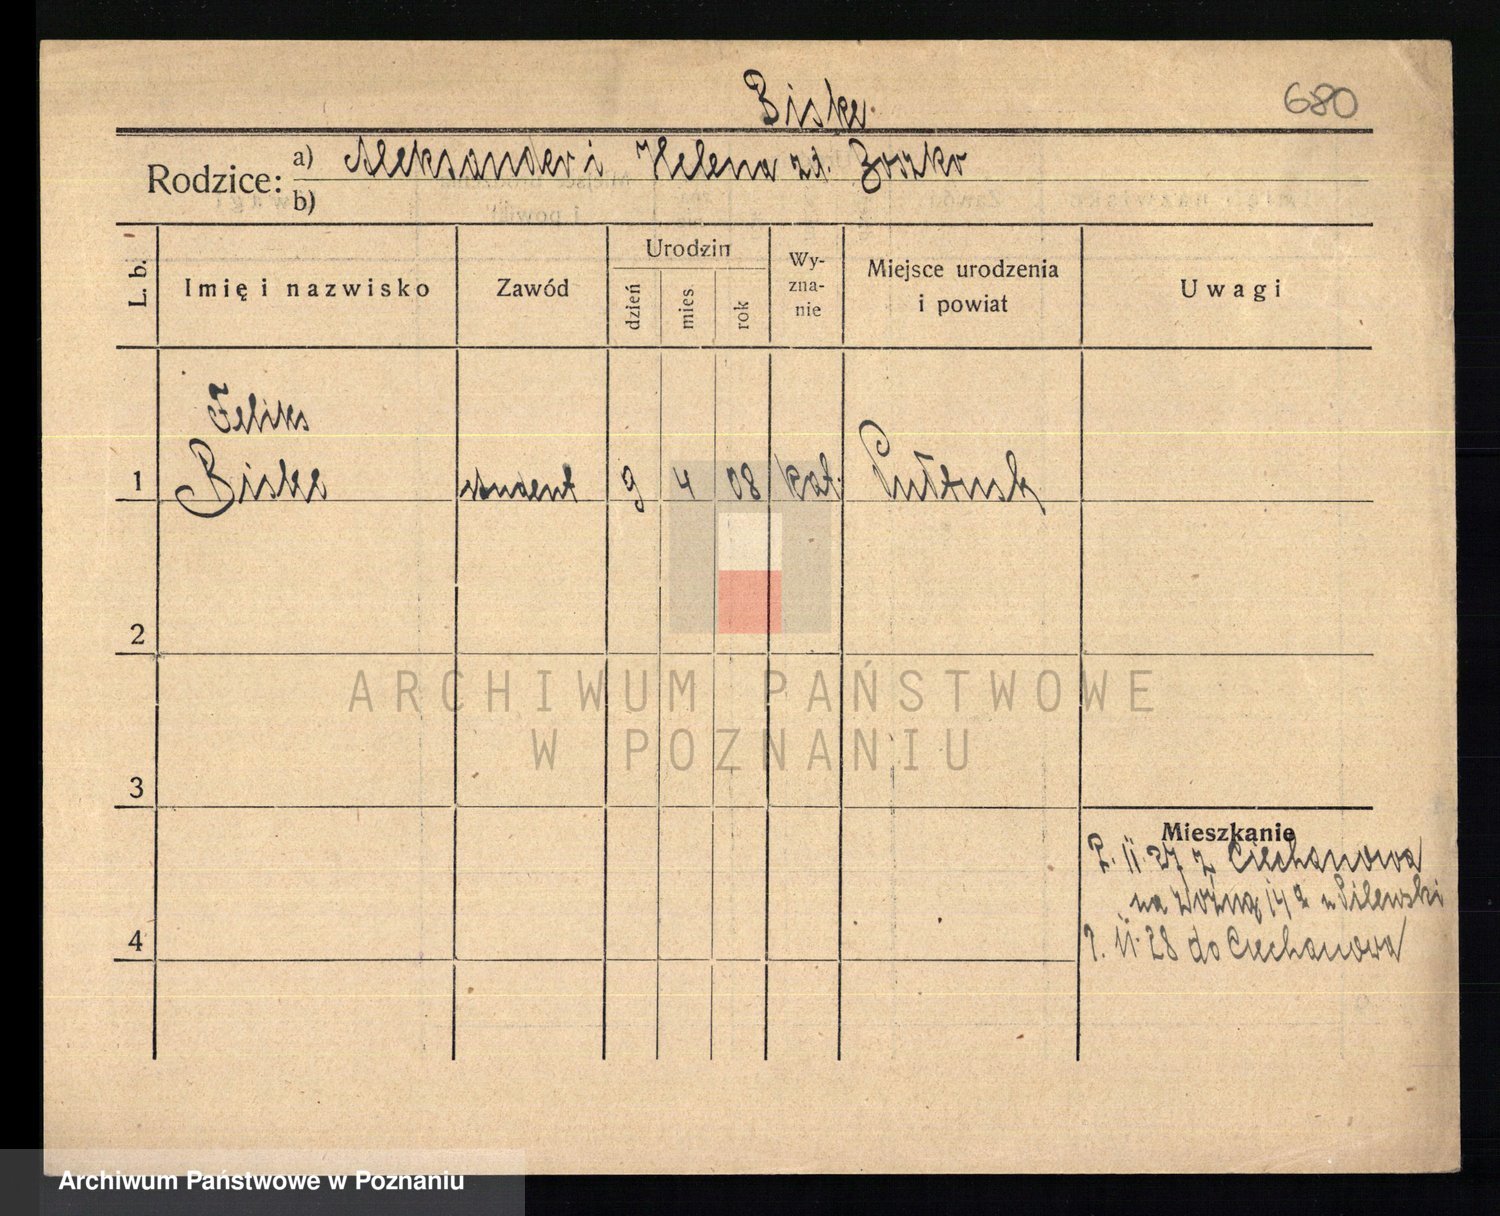 Biske
680
Rodzice:
a) Aleksander i Helena zd. Zoszko
b)
L. b.
Imię i nazwisko
Zawód
Urodzin
dzień
mies
rok
Wy-
zna-
nie
Miejsce urodzenia
i powiat
Uwagi
Feliks
1 Biske student 9 4 08 kat. Pułtusk
2
3
4
ARCHIWUM PAŃSTWOWE
W POZNANIU
Mieszkanie
2. 11. 27 z Ciechanowa
na Woźną 14 u Pilewski
11. 28 do Ciechanowa
Archiwum Państwowe w Poznaniu